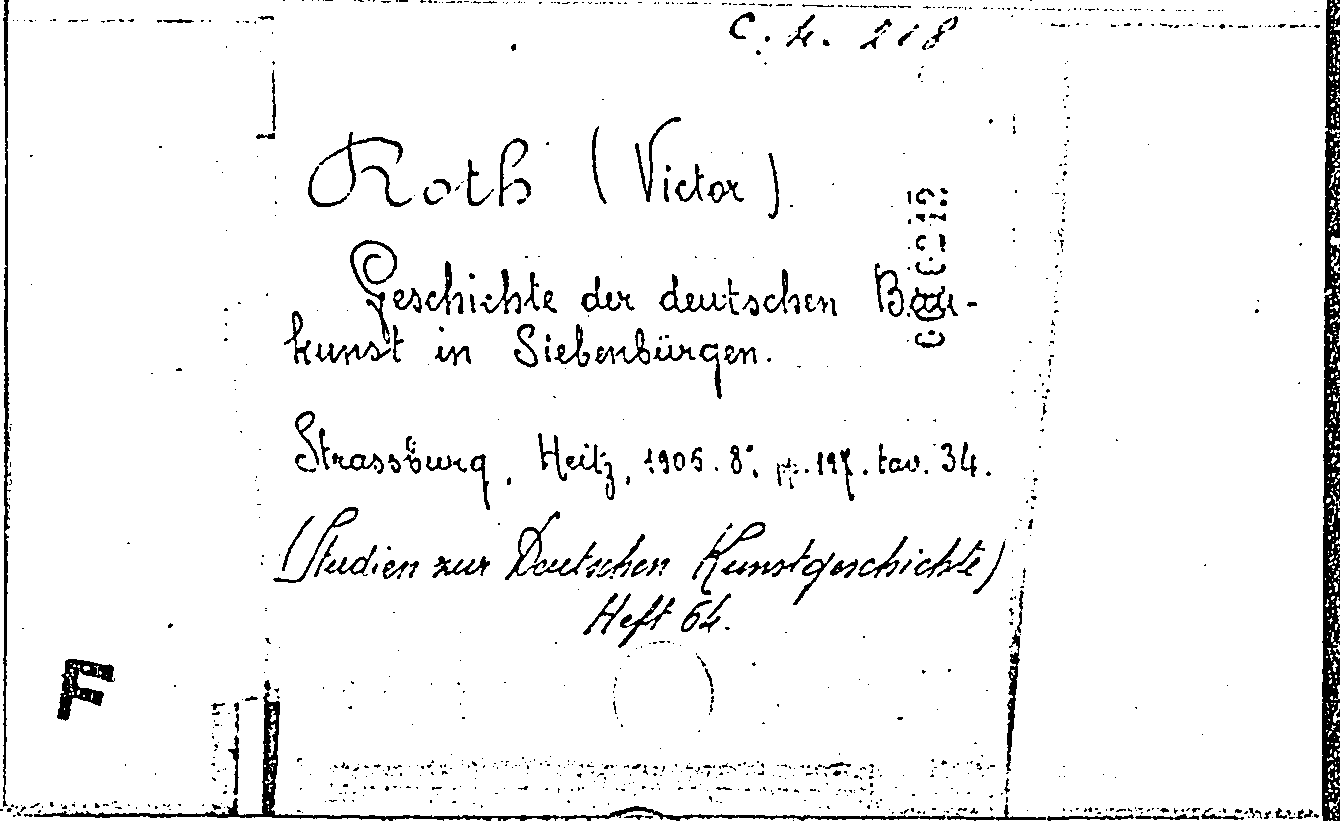 C. 4. 218
Roth (Victor).
Geschichte der deutschen Bau-
kunst in Siebenbürgen.
Strassburg, Heitz, 1905. 8°. pp. 197. tav. 34.
(Studien zur Deutschen Kunstgeschichte)
Heft 64.
F